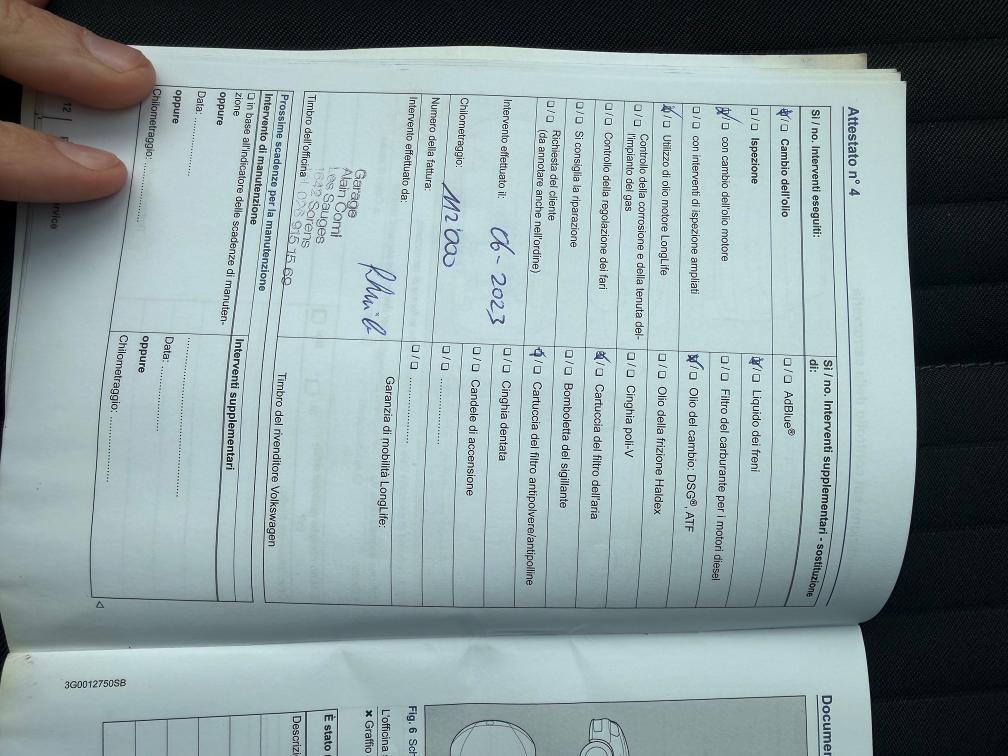 Attestato n° 4
Sì / no. Interventi eseguiti:
☒ / ☐ Cambio dell'olio
☐ / ☐ Ispezione
☒ / ☐ con cambio dell'olio motore
☐ / ☐ con interventi di ispezione ampliati
☒ / ☐ Utilizzo di olio motore LongLife
☐ / ☐ Controllo della corrosione e della tenuta del-
l'impianto del gas
☐ / ☐ Controllo della regolazione dei fari
☐ / ☐ Si consiglia la riparazione
☐ / ☐ Richiesta del cliente
(da annotare anche nell'ordine)
Intervento effettuato il: 06-2023
Chilometraggio: 112'000
Numero della fattura:
Intervento effettuato da:
Garage
Alain Comi
Les Sauges
Sorens
Timbro dell'officina
Sì / no. Interventi supplementari - sostituzione
di:
☐ / ☐ AdBlue®
☒ / ☐ Liquido dei freni
☐ / ☐ Filtro del carburante per i motori diesel
☒ / ☐ Olio del cambio: DSG®, ATF
☐ / ☐ Olio della frizione Haldex
☐ / ☐ Cinghia poli-V
☒ / ☐ Cartuccia del filtro dell'aria
☐ / ☐ Bomboletta del sigillante
☒ / ☐ Cartuccia del filtro antipolvere/antipolline
☐ / ☐ Cinghia dentata
☐ / ☐ Candele di accensione
☐ / ☐ ................
☐ / ☐ ................
Garanzia di mobilità LongLife:
Timbro del rivenditore Volkswagen
Prossime scadenze per la manutenzione
Intervento di manutenzione
☐ in base all'indicatore delle scadenze di manuten-
zione
oppure
Data: ................
oppure
Chilometraggio: ................
Interventi supplementari
................
Data: ................
oppure
Chilometraggio: ................
12
3G0012750SB
Docum
Fig. 6
L'officina
✖ Graffio
È stato
Descrizi